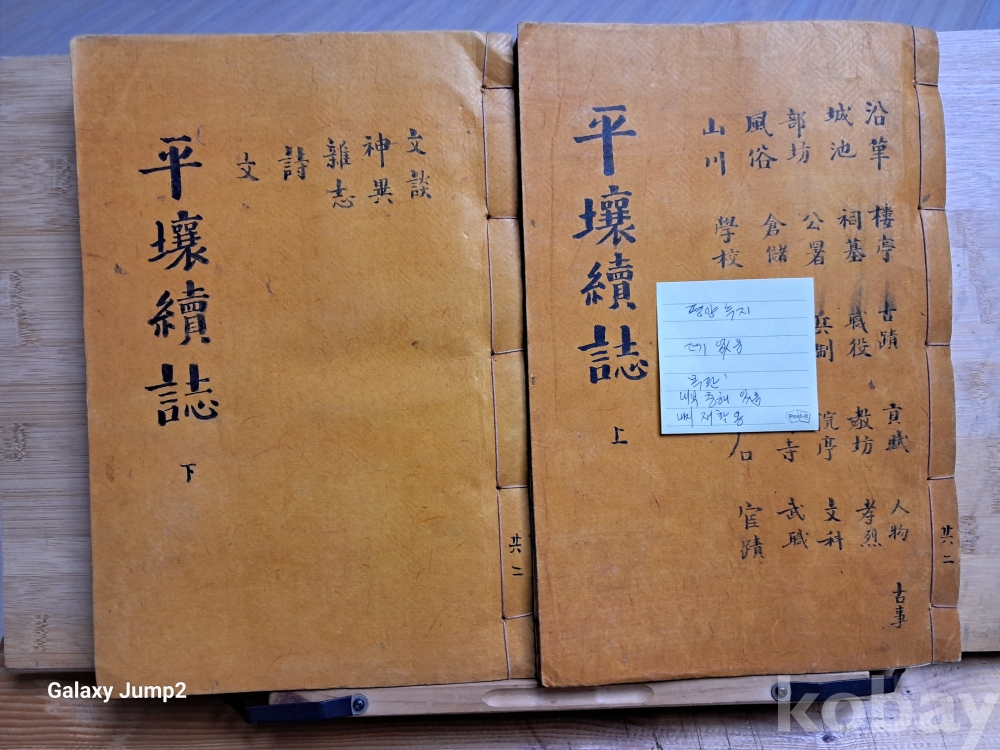 平壤續誌
下
文談
神異
雜志
詩
文
共二
平壤續誌
上
沿革
城池
部坊
風俗
山川
樓亭
祠墓
公署
倉儲
學校
古蹟
職役
兵制
貢賦
教坊
院亭
寺
人物
孝烈
文科
武職
宦蹟
古事
共二
평양 속지
있음
목판
충해 있음
Galaxy Jump2
kobay